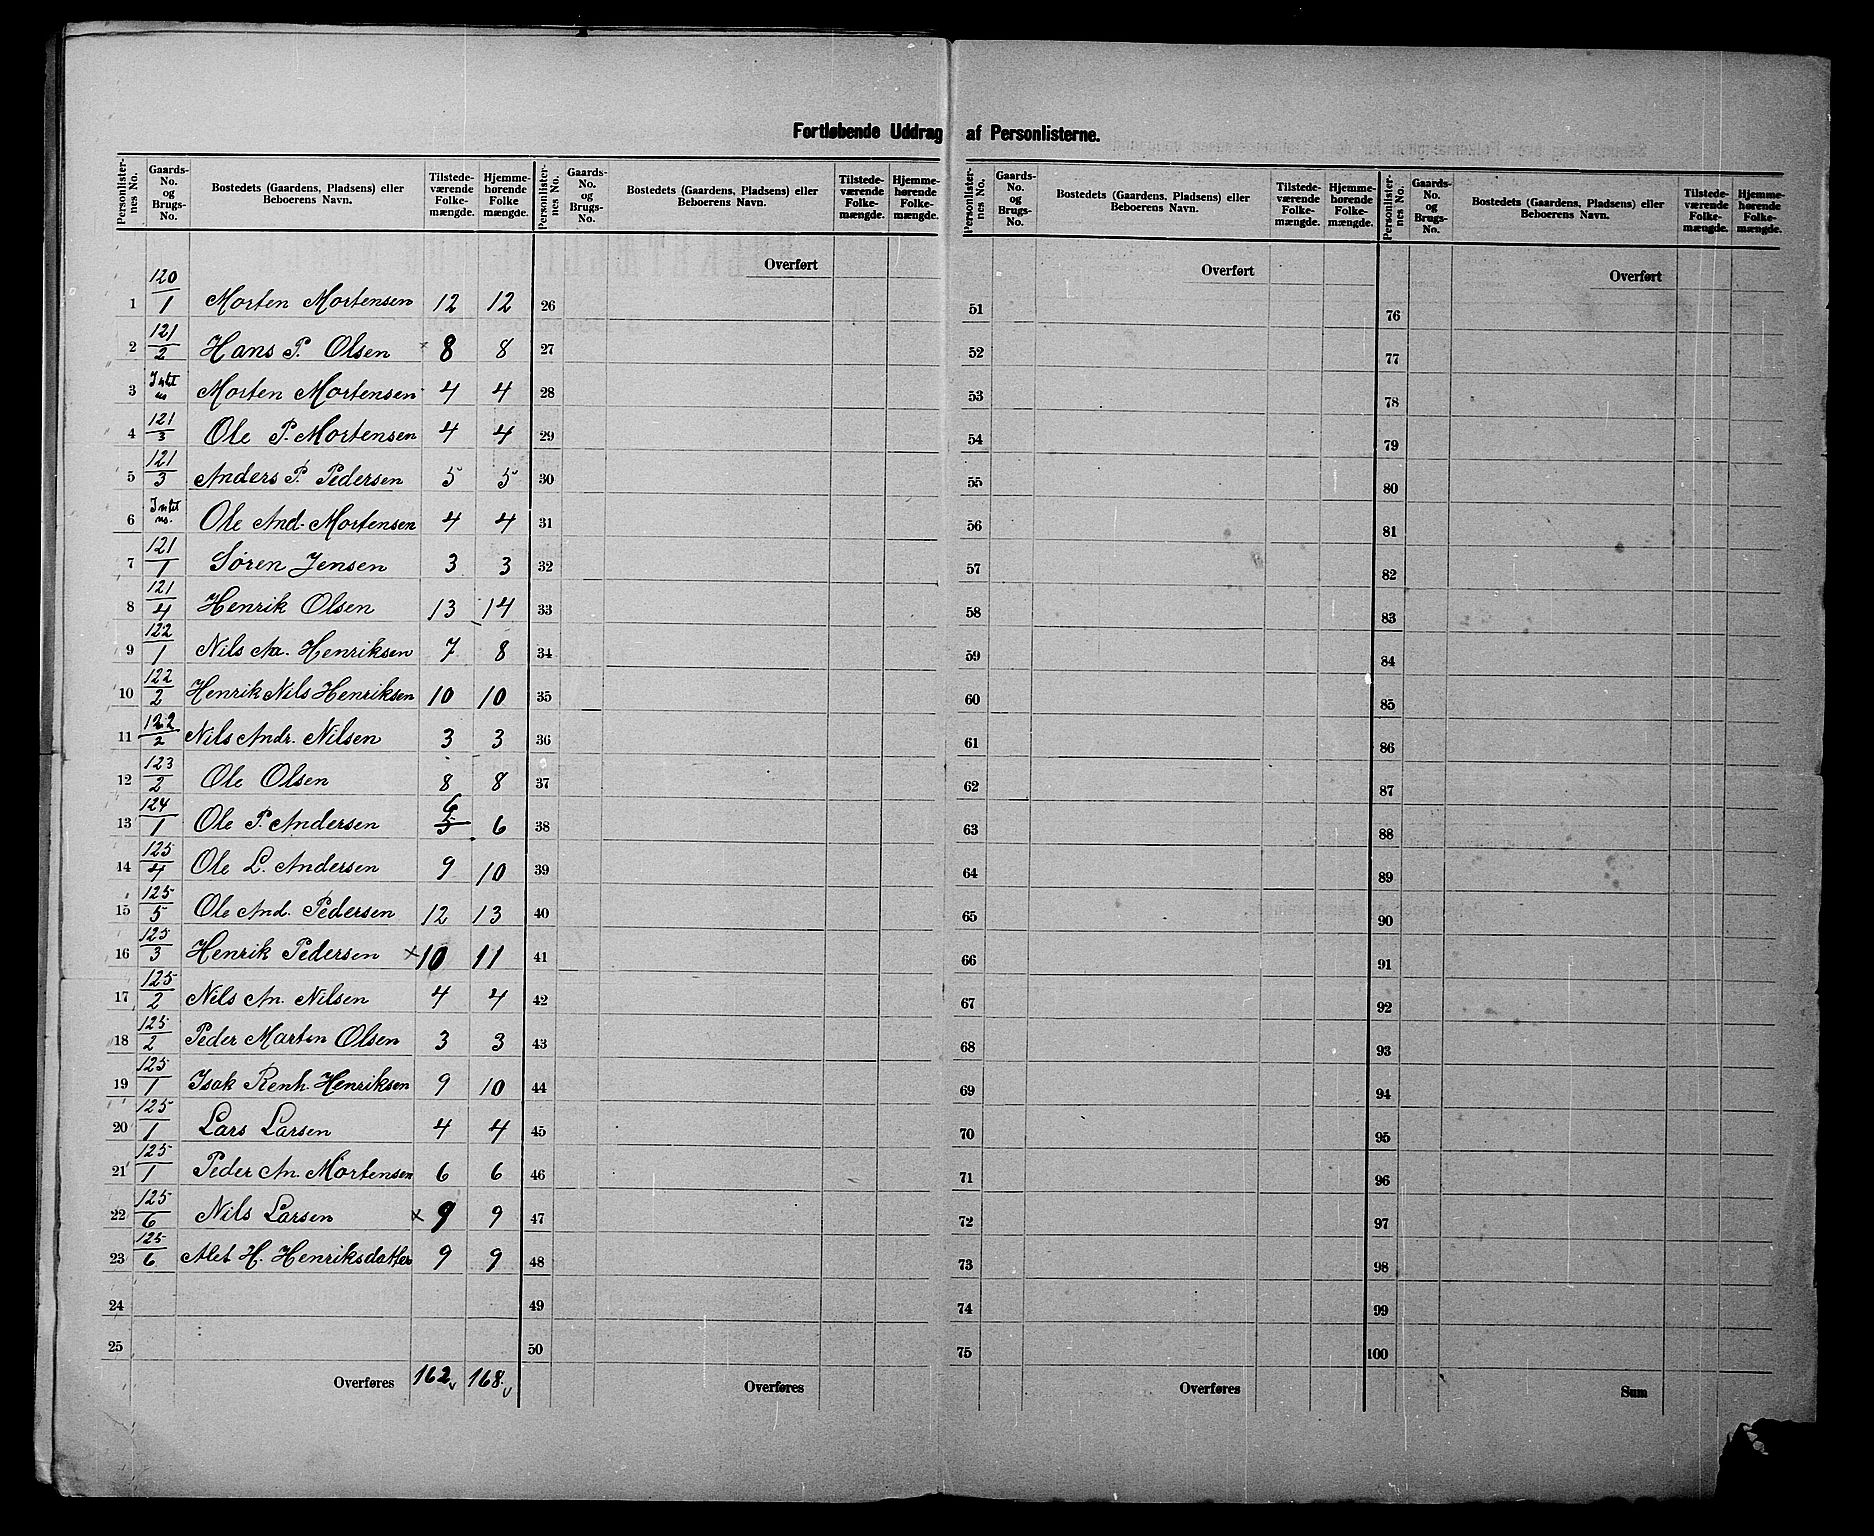 Fortløbende Uddrag af Personlisterne.
Personlister-nes No. | Gaards-No. og Brugs-No. | Bostedets (Gaardens, Pladsens) eller Beboerens Navn. | Tilstede-værende Folke-mængde. | Hjemme-hørende Folke mængde. | Personlister-nes No. | Gaards-No. og Brugs-No. | Bostedets (Gaardens, Pladsens) eller Beboerens Navn. | Tilstede-værende Folke-mængde. | Hjemme-hørende Folke-mængde. | Personlister-nes No. | Gaards-No. og Brugs-No. | Bostedets (Gaardens, Pladsens) eller Beboerens Navn. | Tilstede-værende Folke-mængde. | Hjemme-hørende Folke-mængde. | Personlister-nes No. | Gaards-No. og Brugs-No. | Bostedets (Gaardens, Pladsens) eller Beboerens Navn. | Tilstede-værende Folke-mængde. | Hjemme-hørende Folke-mængde.
Overført Overført Overført
1 120/1 Morten Mortensen 12 12 26 51 76
2 121/2 Hans P. Olsen × 8 8 27 52 77
3 Intet no Morten Mortensen 4 4 28 53 78
4 121/3 Ole P. Mortensen 4 4 29 54 79
5 121/3 Anders P. Pedersen 5 5 30 55 80
6 Intet no. Ole And. Mortensen 4 4 31 56 81
7 121/1 Søren Jensen 3 3 32 57 82
8 121/4 Henrik Olsen 13 14 33 58 83
9 122/1 Nils Aa. Henriksen 7 8 34 59 84
10 122/2 Henrik Nils Henriksen 10 10 35 60 85
11 122/2 Nils Andr. Nilsen 3 3 36 61 86
12 123/2 Ole Olsen 8 8 37 62 87
13 124/1 Ole P. Andersen 6 5 6 38 63 88
14 125/4 Ole L. Andersen 9 10 39 64 89
15 125/5 Ole And. Pedersen 12 13 40 65 90
16 125/3 Henrik Pedersen × 10 11 41 66 91
17 125/2 Nils An. Nilsen 4 4 42 67 92
18 125/2 Peder Marten Olsen 3 3 43 68 93
19 125/1 Isak Renh. Henriksen 9 10 44 69 94
20 125/1 Lars Larsen 4 4 45 70 95
21 125/1 Peder An. Mortensen 6 6 46 71 96
22 125/6 Nils Larsen × 9 9 47 72 97
23 125/6 Alet H. Henriksdatter 9 9 48 73 98
24 49 74 99
25 50 75 100
Overføres 162 v 168. v Overføres Overføres Sum